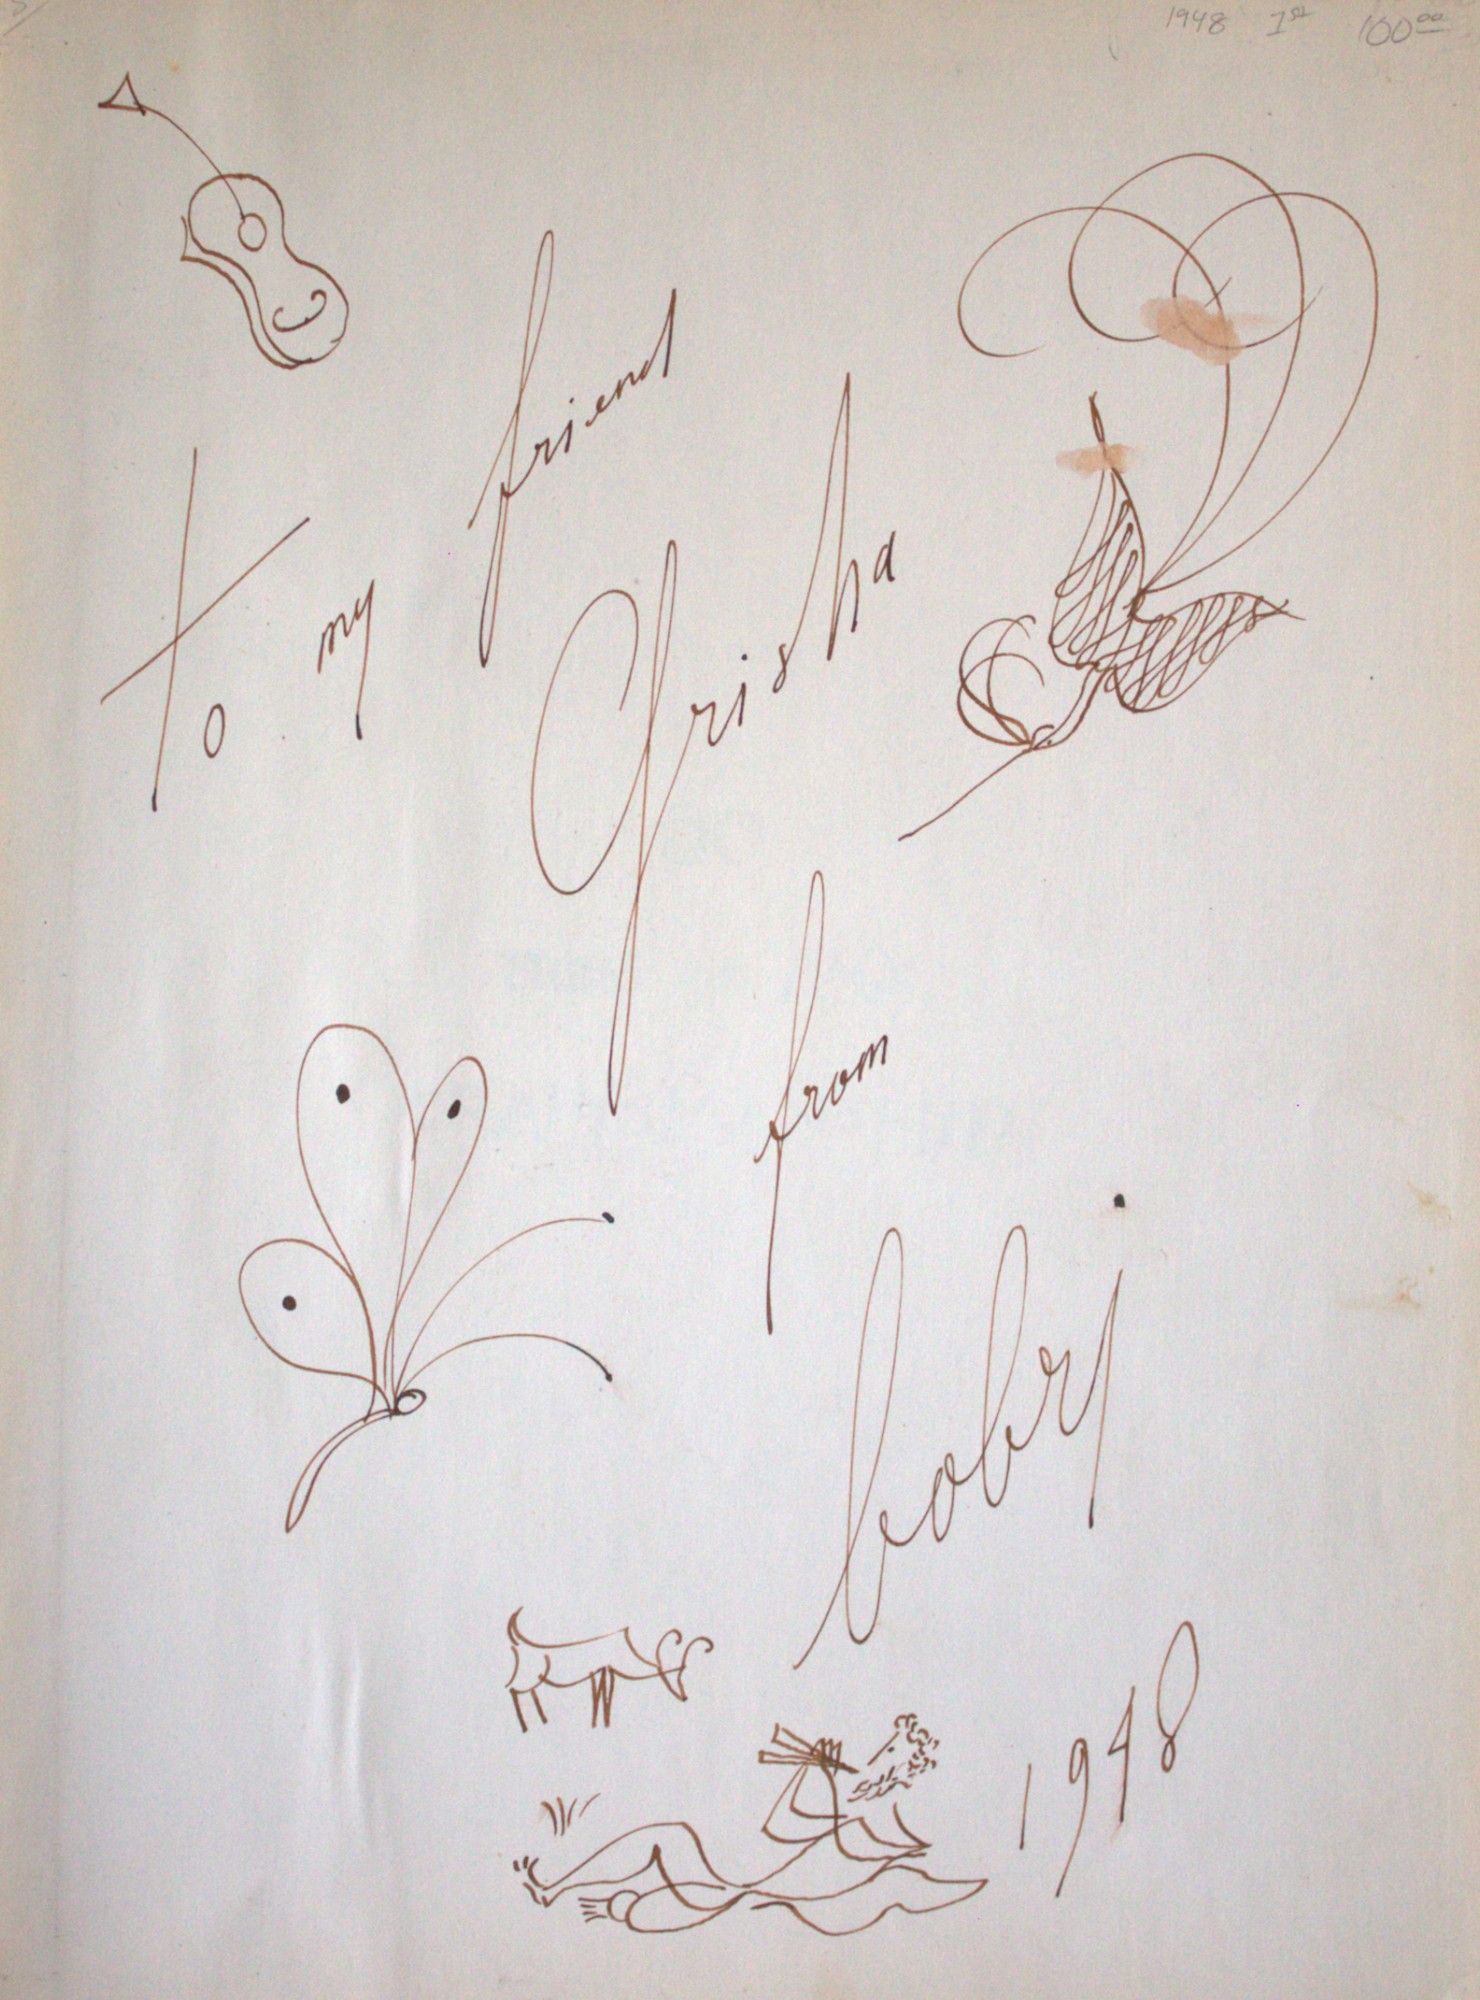 1948 1st 100.00
to my friend
Grisha
from
bobri
1948